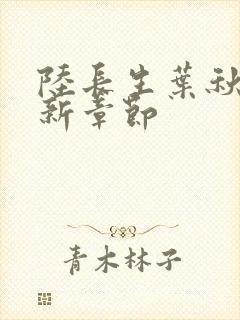 陸長生葉秋
新章節
青木林子